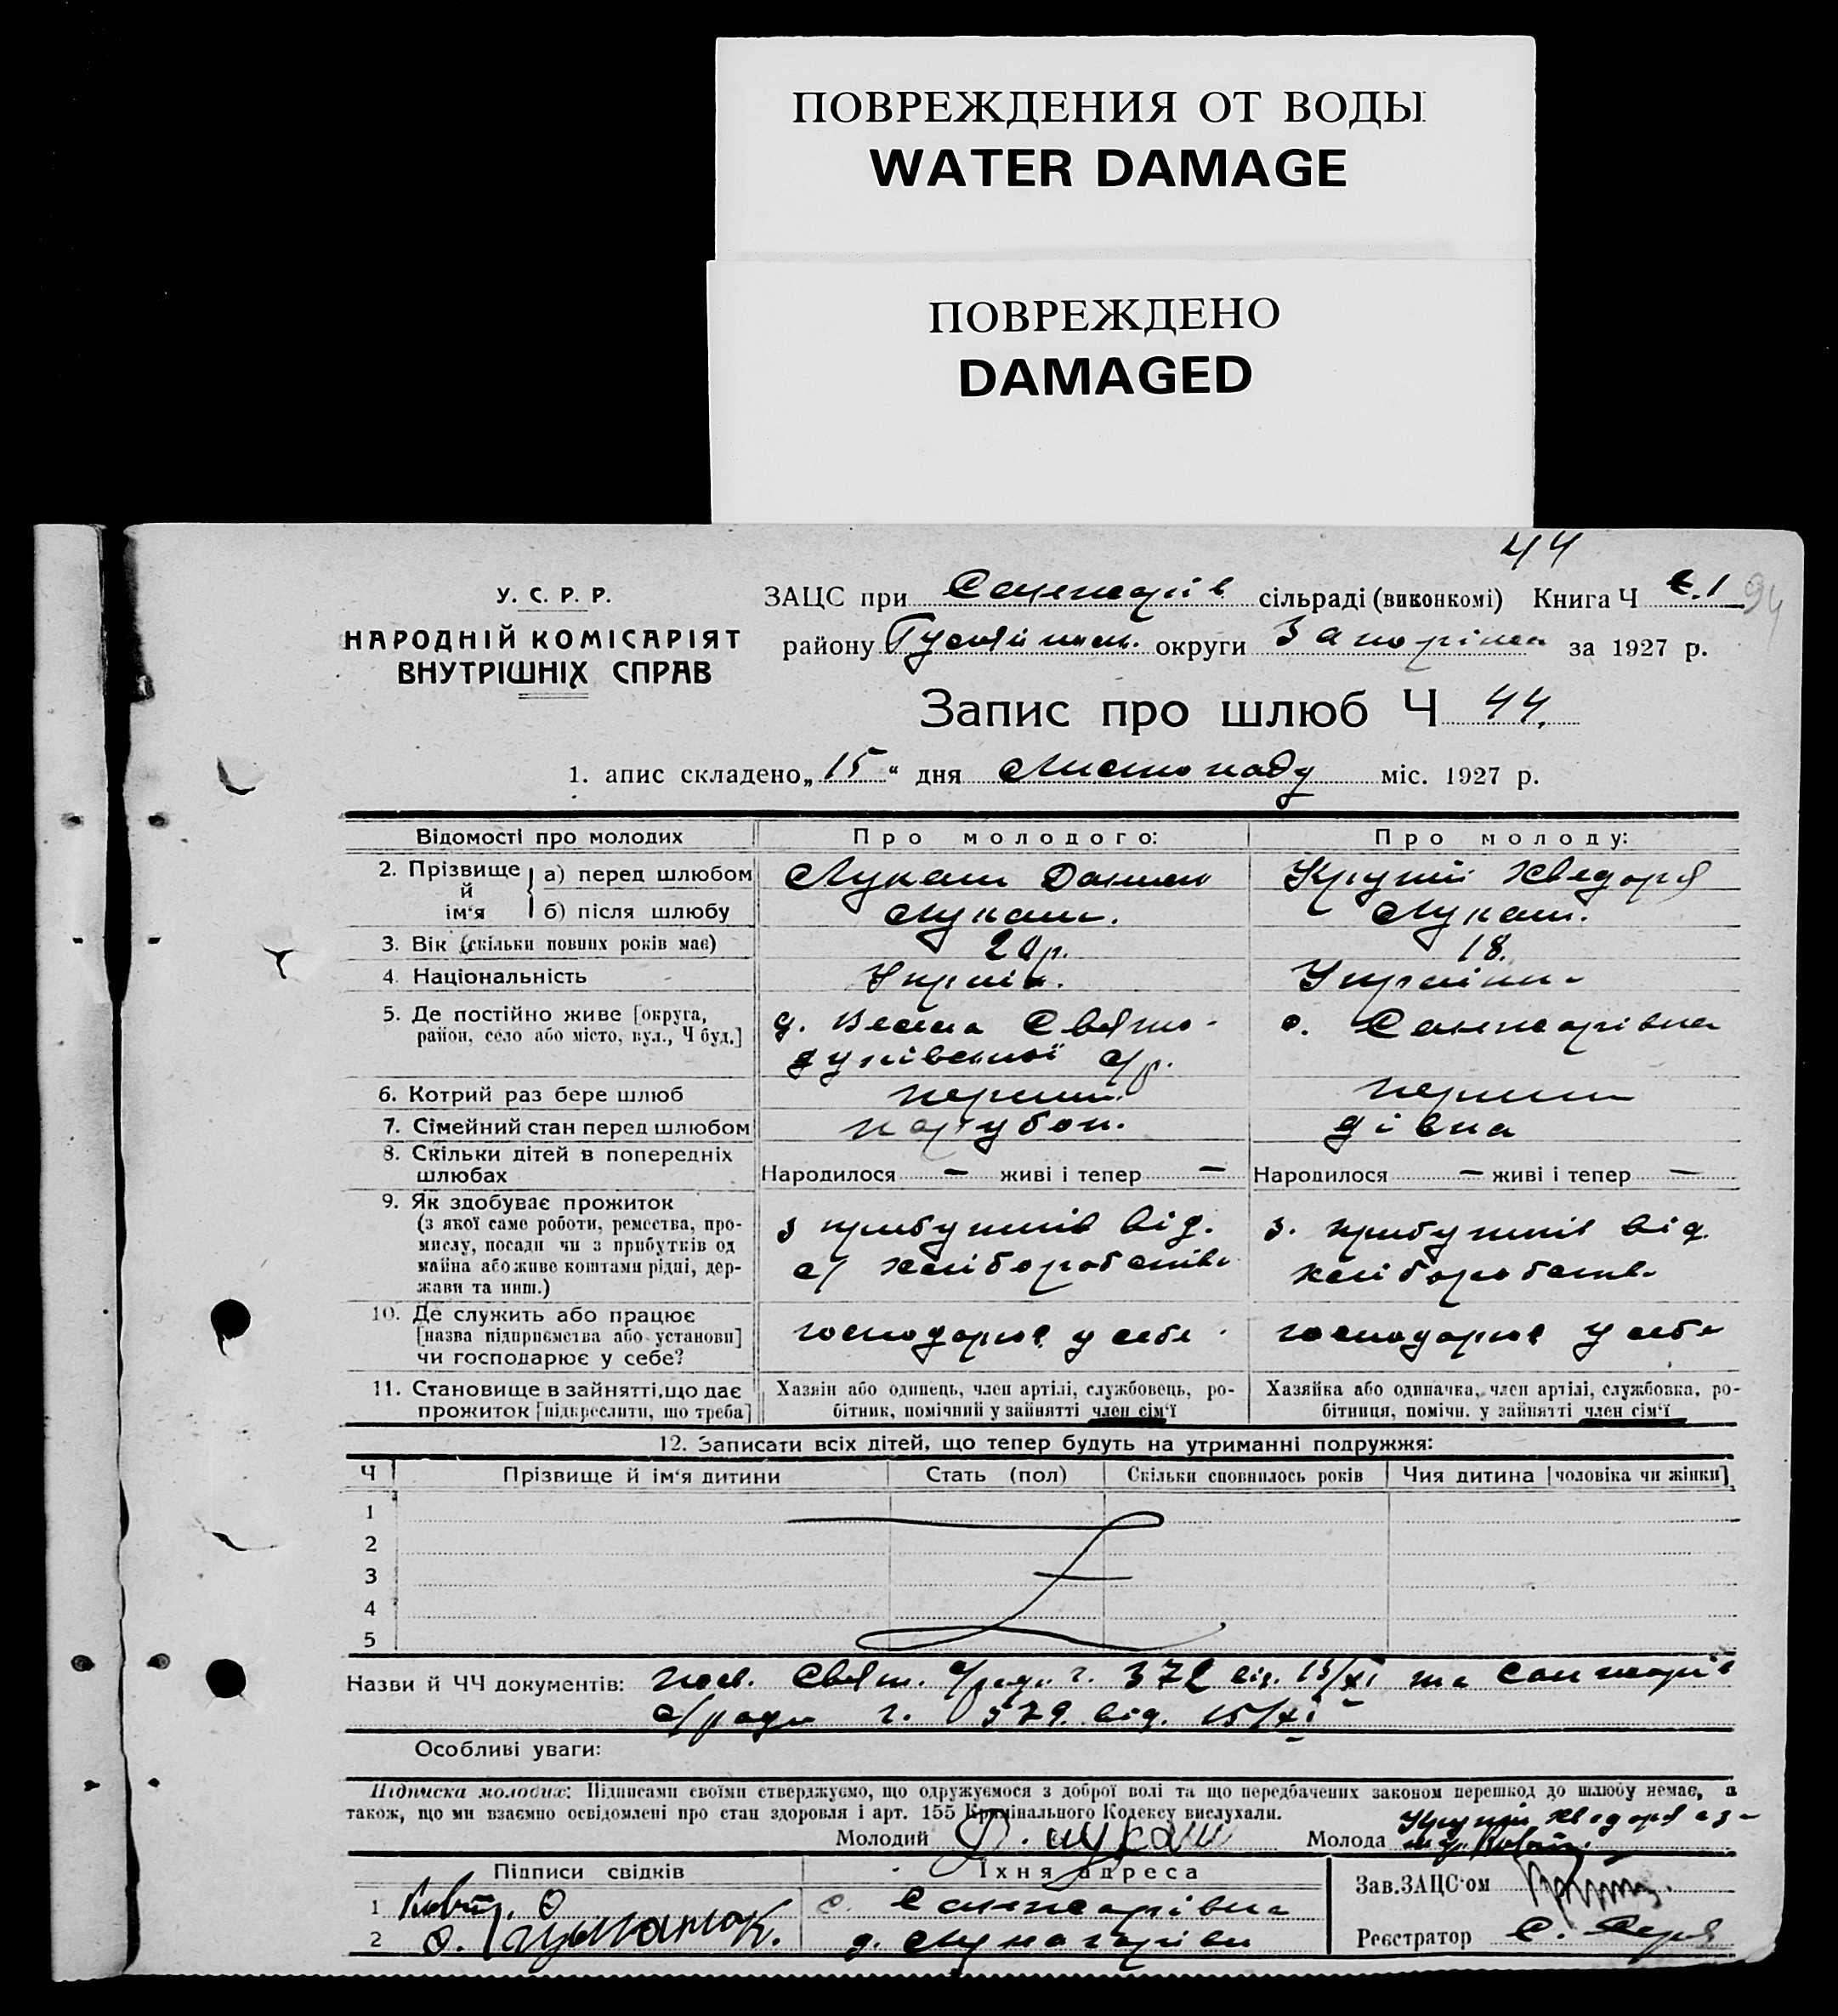 ПОВРЕЖДЕНИЯ ОТ ВОДЫ
WATER DAMAGE
ПОВРЕЖДЕНО
DAMAGED
44
У. С. Р. Р.
НАРОДНІЙ КОМІСАРІЯТ
ВНУТРІШНІХ СПРАВ
ЗАЦС при Санжарів сільраді (виконкомі) Книга Ч 1 94
району округи Запоріжж за 1927 р.
Запис про шлюб Ч 44.
1. апис складено „15“ дня Листопаду міс. 1927 р.
Відомості про молодих Про молодого: Про молоду:
2. Прізвище й ім‘я а) перед шлюбом Лукаш Данило Крупій Хведоря
б) після шлюбу Лукаш. Лукаш.
3. Вік (скільки повних років має) 20 р. 18.
4. Національність Україн. Українк
5. Де постійно живе [округа, район, село або місто, вул., Ч буд.] с. Санжарівка
6. Котрий раз бере шлюб перший перший
7. Сімейний стан перед шлюбом парубок. дівка
8. Скільки дітей в попередніх шлюбах Народилося — живі і тепер — Народилося — живі і тепер —
9. Як здобуває прожиток
(з якої саме роботи, ремества, про-
мислу, посади чи з прибутків од
майна або живе коштами рідні, дер-
жави та инш.)
з прибутків від.
с/ хліборобства
з. прибутків від
хліборобства
10. Де служить або працює
[назва підприємства або установи]
чи господарює у себе?
господарює у себе
господарює у себе
11. Становище в зайнятті, що дає
прожиток [підкреслити, що треба]
Хазяїн або одинець, член артілі, службовець, ро-
бітник, помічний у зайнятті член сім‘ї
Хазяйка або одиначка, член артілі, службовка, ро-
бітниця, помічн. у зайнятті член сім‘ї
12. Записати всіх дітей, що тепер будуть на утриманні подружжя:
Ч Прізвище й ім‘я дитини Стать (пол) Скільки сповнилось років Чия дитина [чоловіка чи жінки]
1
2
3
4
5
Назви й ЧЧ документів: посв. Свят. с/ради ч. 372 від. 15/XI та Санжарів
с/ради ч. 379. від. 15/XI
Особливі уваги:
Підписка молодих: Підписами своїми стверджуємо, що одружуємося з доброї волі та що передбачених законом перешкод до шлюбу немає, а
також, що ми взаємно освідомлені про стан здоровля і арт. 155 Кримінального Кодексу вислухали.
Молодий Д. Лукаш Молода Крупій Хведоря
Підписи свідків Їхня адреса
1 с. Санжарівка
2
Зав. ЗАЦС‘ом
Реєстратор